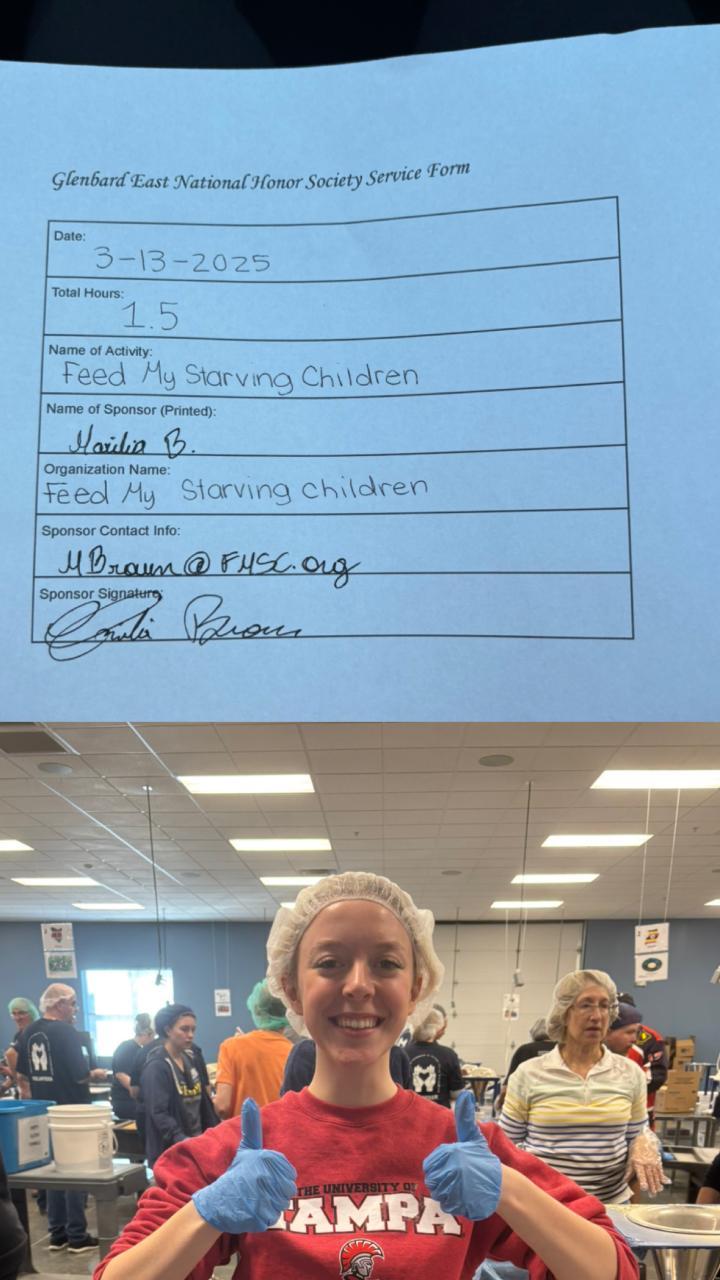 Glenbard East National Honor Society Service Form
Date:
3-13-2025
Total Hours:
1.5
Name of Activity:
Feed My Starving Children
Name of Sponsor (Printed):
Marilia B.
Organization Name:
Feed My Starving Children
Sponsor Contact Info:
MBraun@FMSC.org
Sponsor Signature:
THE UNIVERSITY OF
TAMPA